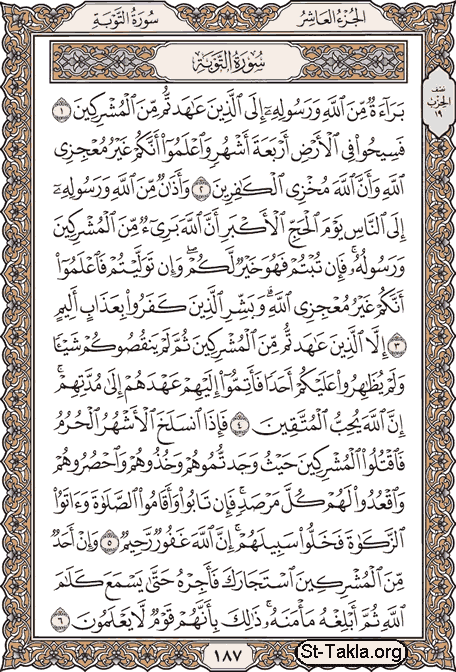 سُورَةُ التَّوْبَةِ
الجُزْءُ العَاشِرُ
سُورَةُ التَّوْبَةِ
نصف
الحزب
١٩
بَرَآءَةٌ مِّنَ ٱللَّهِ وَرَسُولِهِۦٓ إِلَى ٱلَّذِينَ عَٰهَدتُّم مِّنَ ٱلْمُشْرِكِينَ ١
فَسِيحُوا۟ فِى ٱلْأَرْضِ أَرْبَعَةَ أَشْهُرٍ وَٱعْلَمُوٓا۟ أَنَّكُمْ غَيْرُ مُعْجِزِى
ٱللَّهِ وَأَنَّ ٱللَّهَ مُخْزِى ٱلْكَٰفِرِينَ ٢ وَأَذَٰنٌ مِّنَ ٱللَّهِ وَرَسُولِهِۦٓ
إِلَى ٱلنَّاسِ يَوْمَ ٱلْحَجِّ ٱلْأَكْبَرِ أَنَّ ٱللَّهَ بَرِىٓءٌ مِّنَ ٱلْمُشْرِكِينَ
وَرَسُولُهُۥ فَإِن تُبْتُمْ فَهُوَ خَيْرٌ لَّكُمْ وَإِن تَوَلَّيْتُمْ فَٱعْلَمُوٓا۟
أَنَّكُمْ غَيْرُ مُعْجِزِى ٱللَّهِ وَبَشِّرِ ٱلَّذِينَ كَفَرُوا۟ بِعَذَابٍ أَلِيمٍ
٣ إِلَّا ٱلَّذِينَ عَٰهَدتُّم مِّنَ ٱلْمُشْرِكِينَ ثُمَّ لَمْ يَنقُصُوكُمْ شَيْـًٔا
وَلَمْ يُظَٰهِرُوا۟ عَلَيْكُمْ أَحَدًا فَأَتِمُّوٓا۟ إِلَيْهِمْ عَهْدَهُمْ إِلَىٰ مُدَّتِهِمْ
إِنَّ ٱللَّهَ يُحِبُّ ٱلْمُتَّقِينَ ٤ فَإِذَا ٱنسَلَخَ ٱلْأَشْهُرُ ٱلْحُرُمُ
فَٱقْتُلُوا۟ ٱلْمُشْرِكِينَ حَيْثُ وَجَدتُّمُوهُمْ وَخُذُوهُمْ وَٱحْصُرُوهُمْ
وَٱقْعُدُوا۟ لَهُمْ كُلَّ مَرْصَدٍ فَإِن تَابُوا۟ وَأَقَامُوا۟ ٱلصَّلَوٰةَ وَءَاتَوُا۟
ٱلزَّكَوٰةَ فَخَلُّوا۟ سَبِيلَهُمْ إِنَّ ٱللَّهَ غَفُورٌ رَّحِيمٌ ٥ وَإِنْ أَحَدٌ
مِّنَ ٱلْمُشْرِكِينَ ٱسْتَجَارَكَ فَأَجِرْهُ حَتَّىٰ يَسْمَعَ كَلَٰمَ
ٱللَّهِ ثُمَّ أَبْلِغْهُ مَأْمَنَهُۥ ذَٰلِكَ بِأَنَّهُمْ قَوْمٌ لَّا يَعْلَمُونَ ٦
١٨٧
St-Takla.org